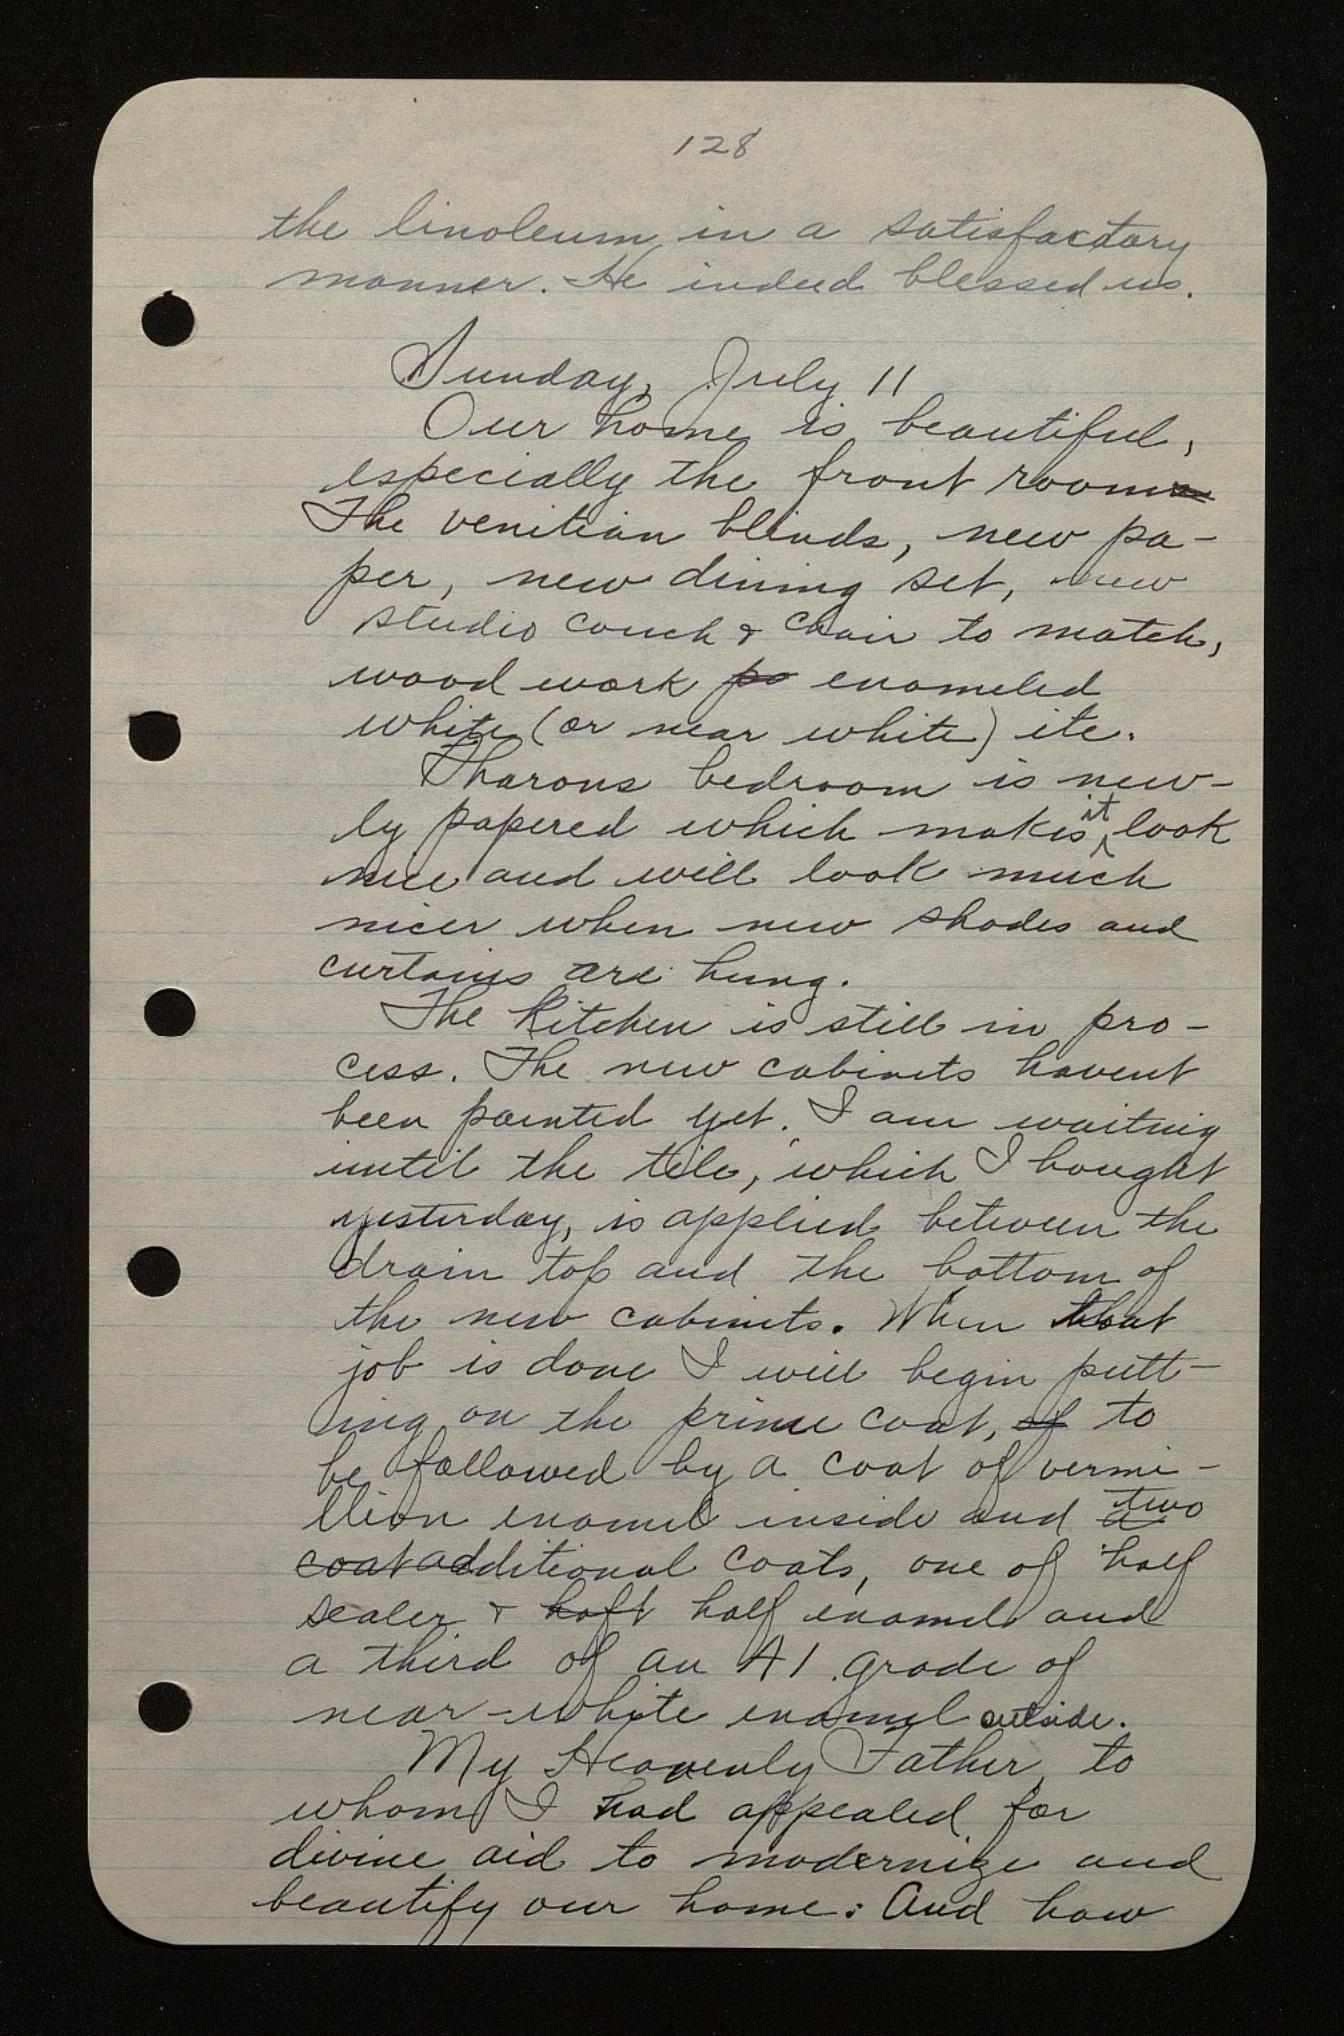 128
the linoleum in a satisfactory
manner. He indeed blessed us.
Sunday, July 11
Our home is beautiful,
especially the front room
The venitian blinds, new pa-
per, new dining set, new
studio couch & chair to match,
wood work po enameled
white (or near white) etc.
Sharons bedroom is new-
ly papered which makes it look
nice and will look much
nicer when new shades and
curtains are hung.
The kitchen is still in pro-
cess. The new cabinets havent
been painted yet. I am waiting
until the tile, which I bought
yesterday, is applied between the
drain top and the bottom of
the new cabinets. When that
job is done I will begin putt-
ing on the prime coat, of to
be followed by a coat of vermi-
llion enamel inside and a two
coat additional coats, one of half
sealer & haft half enamel and
a third of an A1 grade of
near-white enamel outside.
My Heavenly Father to
whom I had appealed for
divine aid to modernize and
beautify our home: And how